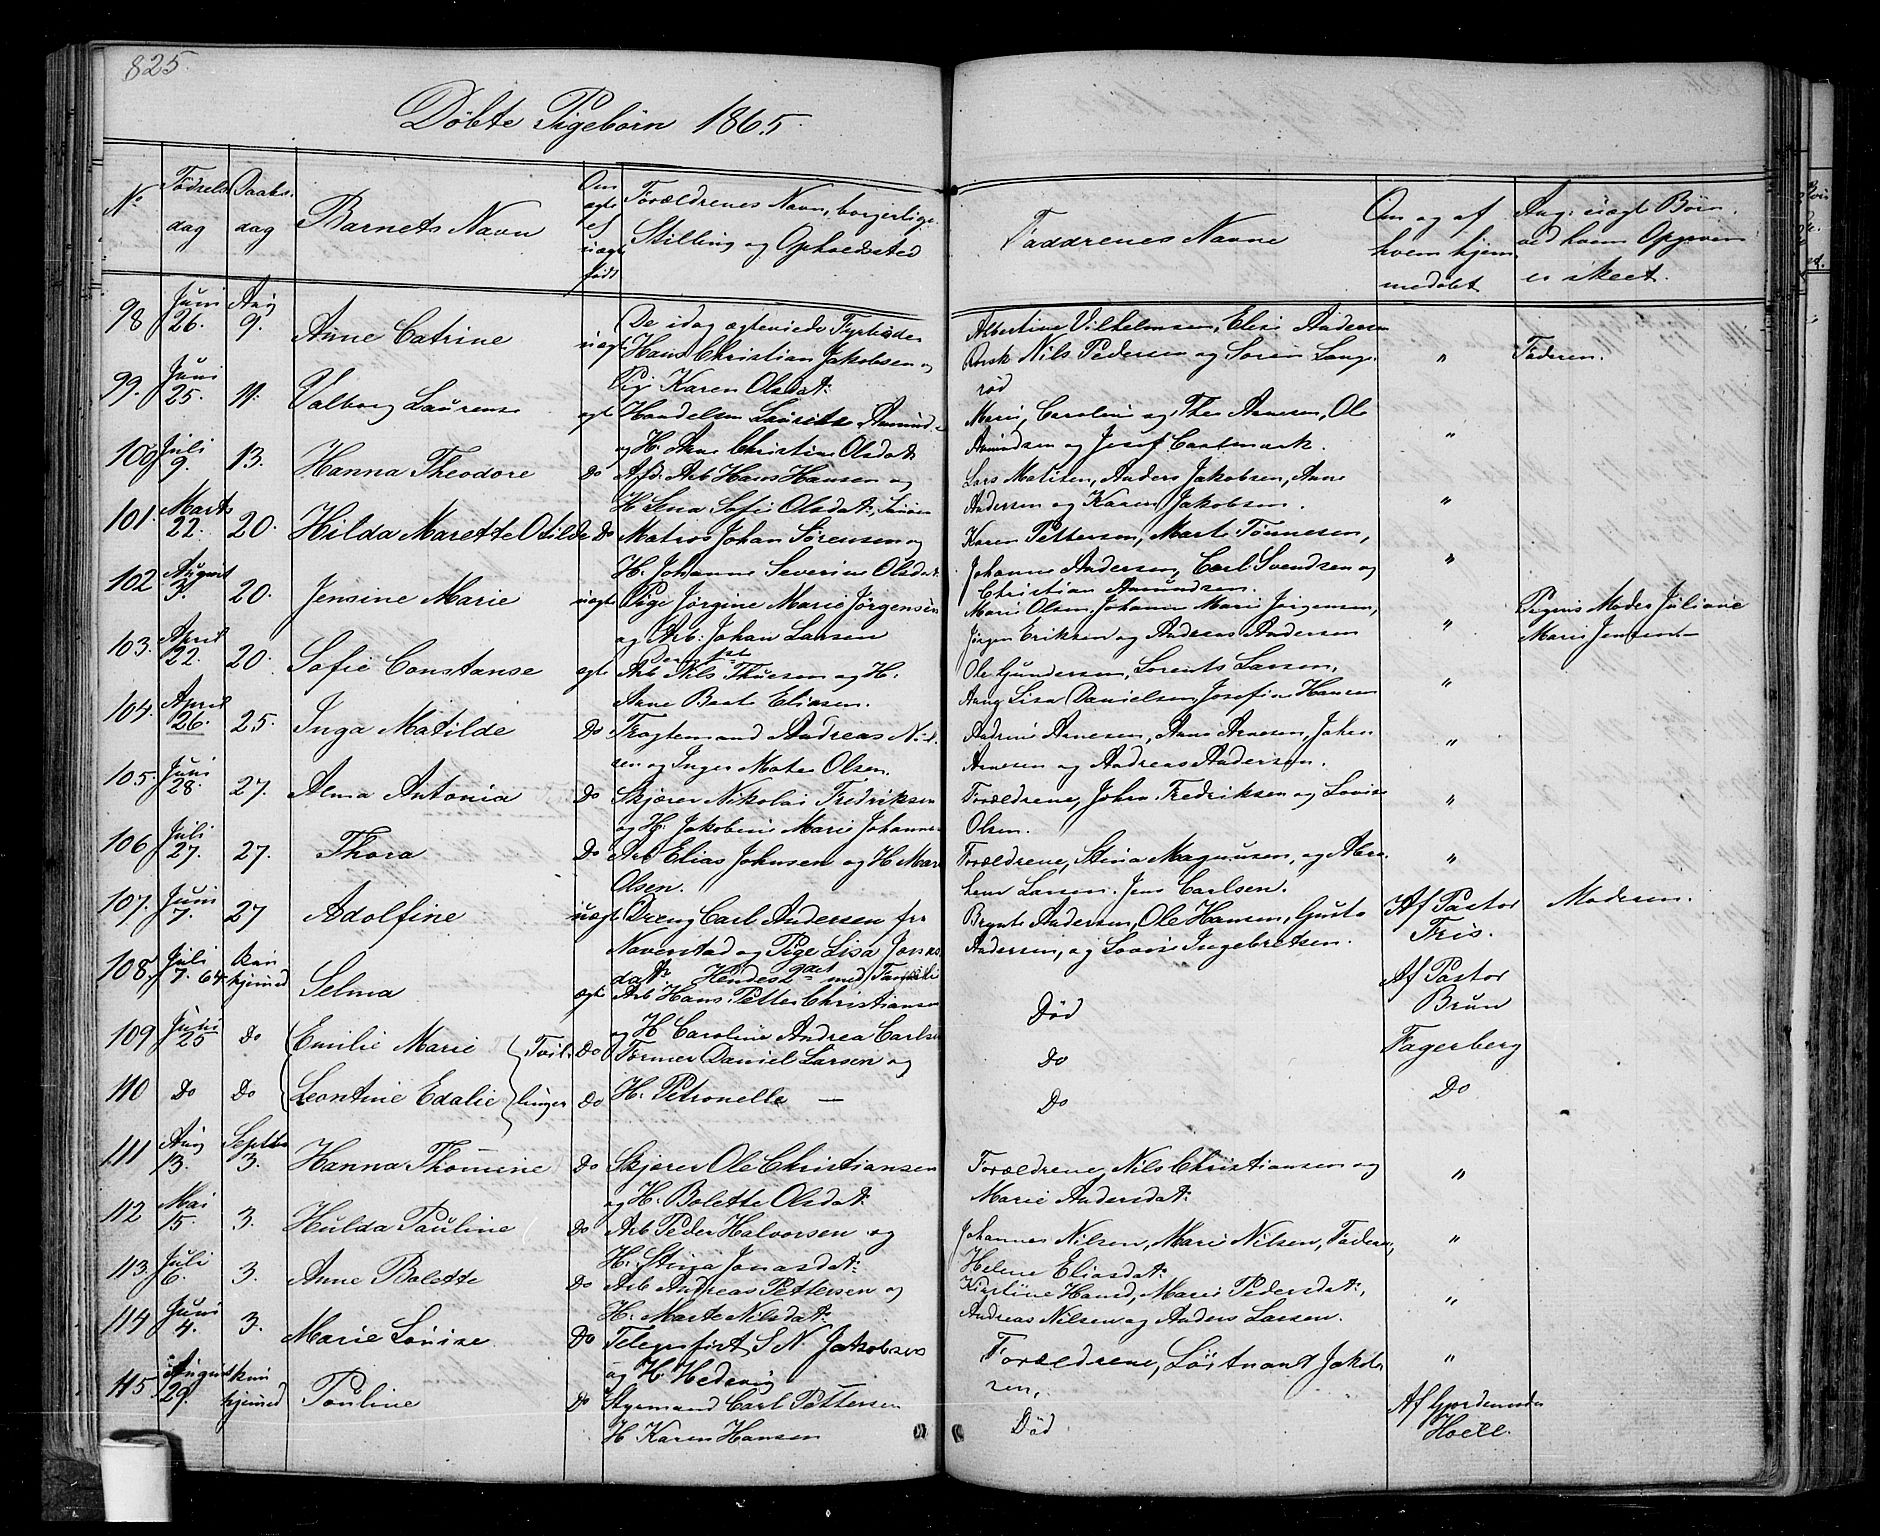 825.
Döbte Pigebörn 1865.
No
Födsels dag
Daabs dag
Barnets Navn
Om ægte el uægte födt
Forældrenes Navn, borgerlige Stilling og Opholdssted
Faddrenes Navne
Om og af hvem hjem medöbt
Ang: uægte Börn ved hvem Opgiven er skeet.
98 Juni 26. Aug 9. Anne Catrine uægt De idag ægteviede Fyrböder Hans Christian Jakobsen og Pige Karen Olsdat: Albertine Vilhelmsen, Elise Andersen Nils Pedersen og Sören Lang röd " Faderen.
99. Juni 25. 11. Valborg Laurense ægte Handelsm Laurits Amund og H. Ane Christine Olsdat: Marie, Caroline og Thea Arnesen, Ole Amundsen og Josef Cartmark. "
100 Juli 9. 13. Hanna Theodore Do Afd: Arb Hans Hansen og H Lena Sofie Olsdat: Lars Matisen, Anders Jakobsen, Anne Andersen og Karen Jakobsen. "
101. Marts 22. 20. Hilda Marette Otilde Do Matros Johan Sörensen og H. Johanne Severine Olsdat: Karen Pettersen, Marte Tönnesen, Johanne Andersen, Carl Svendsen og Christian Amundsen. "
102 August 3. 20. Jensine Marie uægt Pige Jörgine Marie Jörgensen og Arb: Johan Larsen Marie Olsen, Johanne Marie Jörgensen, Jörgen Eriksen og Andreas Andersen " Pigens Moder Juliane Marie Jensen
103. April 22. 20. Sofie Constanse ægte Arb Nils Thuesen og H. Anne Beate Eliasen. Ole Gundersen, Lorents Larsen, Lisa Danielsen, Josefine Hansen "
104. April 26. 25. Inga Matilde Do Fragtemand Andreas Nil sen og Inger Mate Olsen. Andrine Arnesen, Anne Arnesen, Johan Arnesen og Andreas Andersen. "
105. Juni 28. 27. Alma Antonia Do Skjærer Nikolai Fredriksen og H. Jakobine Marie Johanne Forældrene, Johan Fredriksen og Lovise Olsen. "
106 Juli 27. 27. Thora Do Arb Elias Johnsen og H Mari Olsen. Forældrene, Stina Magnusen, og Abra ham Larsen. Jens Carlsen. "
107. Juni 7. 27 Adolfine uægt Dreng Carl Andersen fra Naverstad og Pige Lisa Jonas dat: Hendes 2det med Familie Brynte Andersen, Ole Hansen, Gusta Andersen, og Lovise Ingebretsen. Af Pastor Friis. Moderen.
108, Juli 7. 64 kun hjemed Selma ægte Arb Hans Petter Christiansen og H Caroline Andrea Carlsen Död Af Pastor Brun
109 Juni 25 Do Emilie Marie Tvil Do Former Daniel Larsen og Do Fagerberg
110 Do Do Leontine Edalie linger Do H. Petronelle — Do Do
111 Aug 13. Septbr 3. Hanna Thomine Do Skjærer Ole Christiansen og H. Bolette Olsdat: Forældrene, Nils Christiansen og Marie Andersdat: "
112 Mai 15. 3. Hulda Pauline Do Arb Peder Halvorsen og H. Stina Jonasdat: Johannes Nilsen, Marie Nilsen, Faderen, Helene Eliasdat: "
113. Juli 6. 3. Anne Bolette Do Arb Andreas Pettersen og H. Marte Nilsdat: Kirstine Hansd, Marie Pedersdat:, Andreas Nilsen og Anders Larsen. "
114 Juni 4. 3. Marie Louise Do Telegrafist S. N. Jakobsen og H. Hedevig Forældrene, Löitnant Jakob sen, "
115 August 29. kun hjemed Pauline Do Styrmand Carl Pettersen H Karen Hansen Död Af Gjordemoder Hoell.